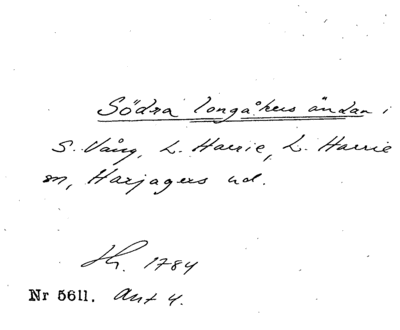 Södra longåkers ändan i
S. Vång, L. Harrie, L. Harrie
sn, Harjagers hd.
Sk. 1784
Nr 5611. Akt 4.